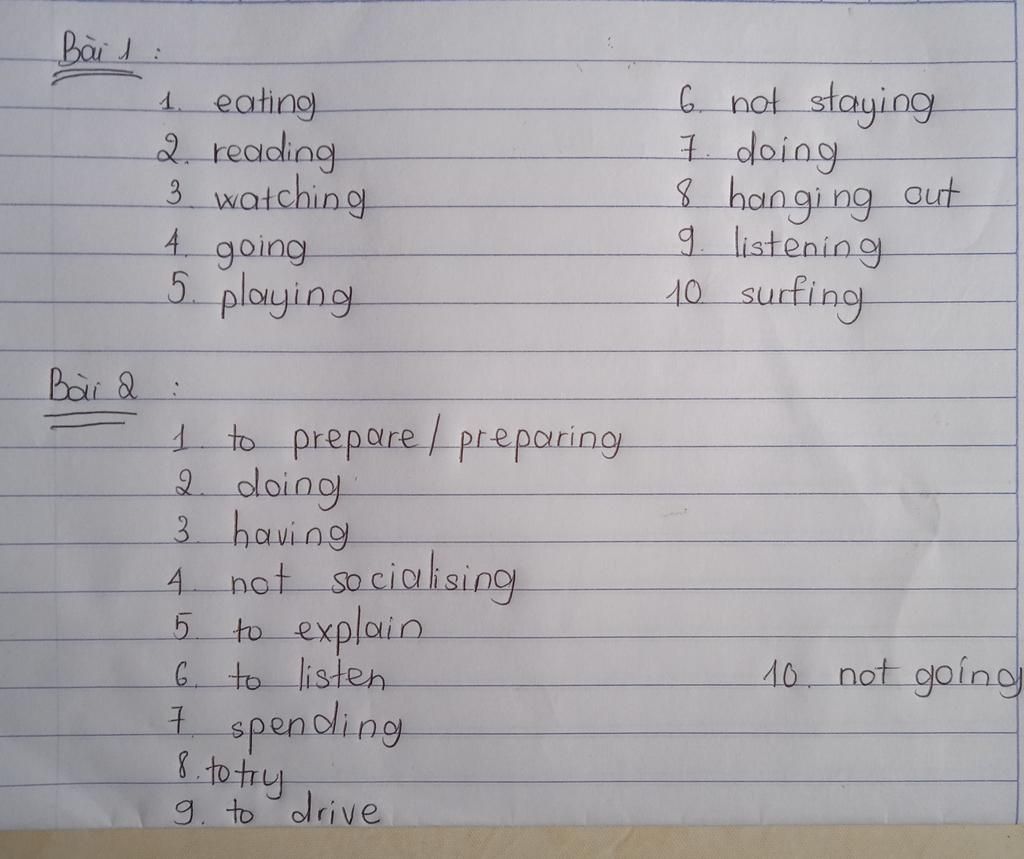 Bài 1 :
1. eating
2. reading
3. watching
4. going
5. playing
6. not staying
7. doing
8 hanging out
9. listening
10. surfing
Bài 2 :
1. to prepare / preparing
2. doing
3. having
4. not socialising
5. to explain
6. to listen
7. spending
8. to try
9. to drive
10. not going